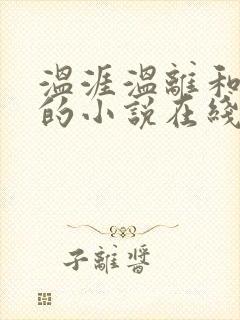 温涯温離和
的小説在綫
子離醬